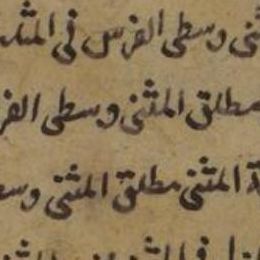 وسطى الفرس في المثلث
مطلق المثنى وسطى الفر
المثنى مطلق المثنى وسط